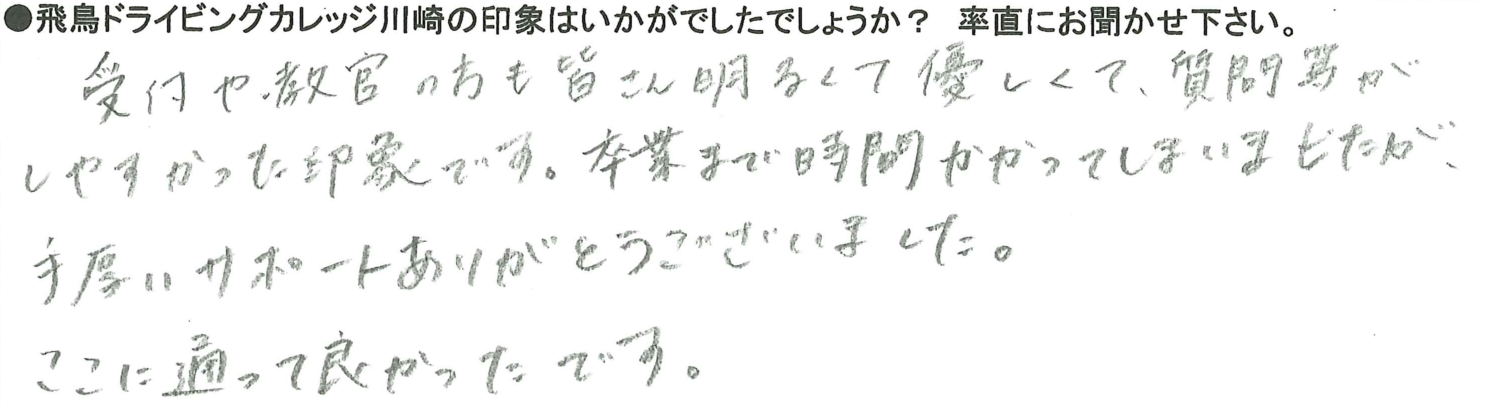 ●飛鳥ドライビングカレッジ川崎の印象はいかがでしたでしょうか？ 率直にお聞かせ下さい。
受付や教官の方も皆さん明るくて優しくて、質問等が
しやすかった印象です。卒業まで時間かかってしまいましたが、
手厚いサポートありがとうございました。
ここに通って良かったです。